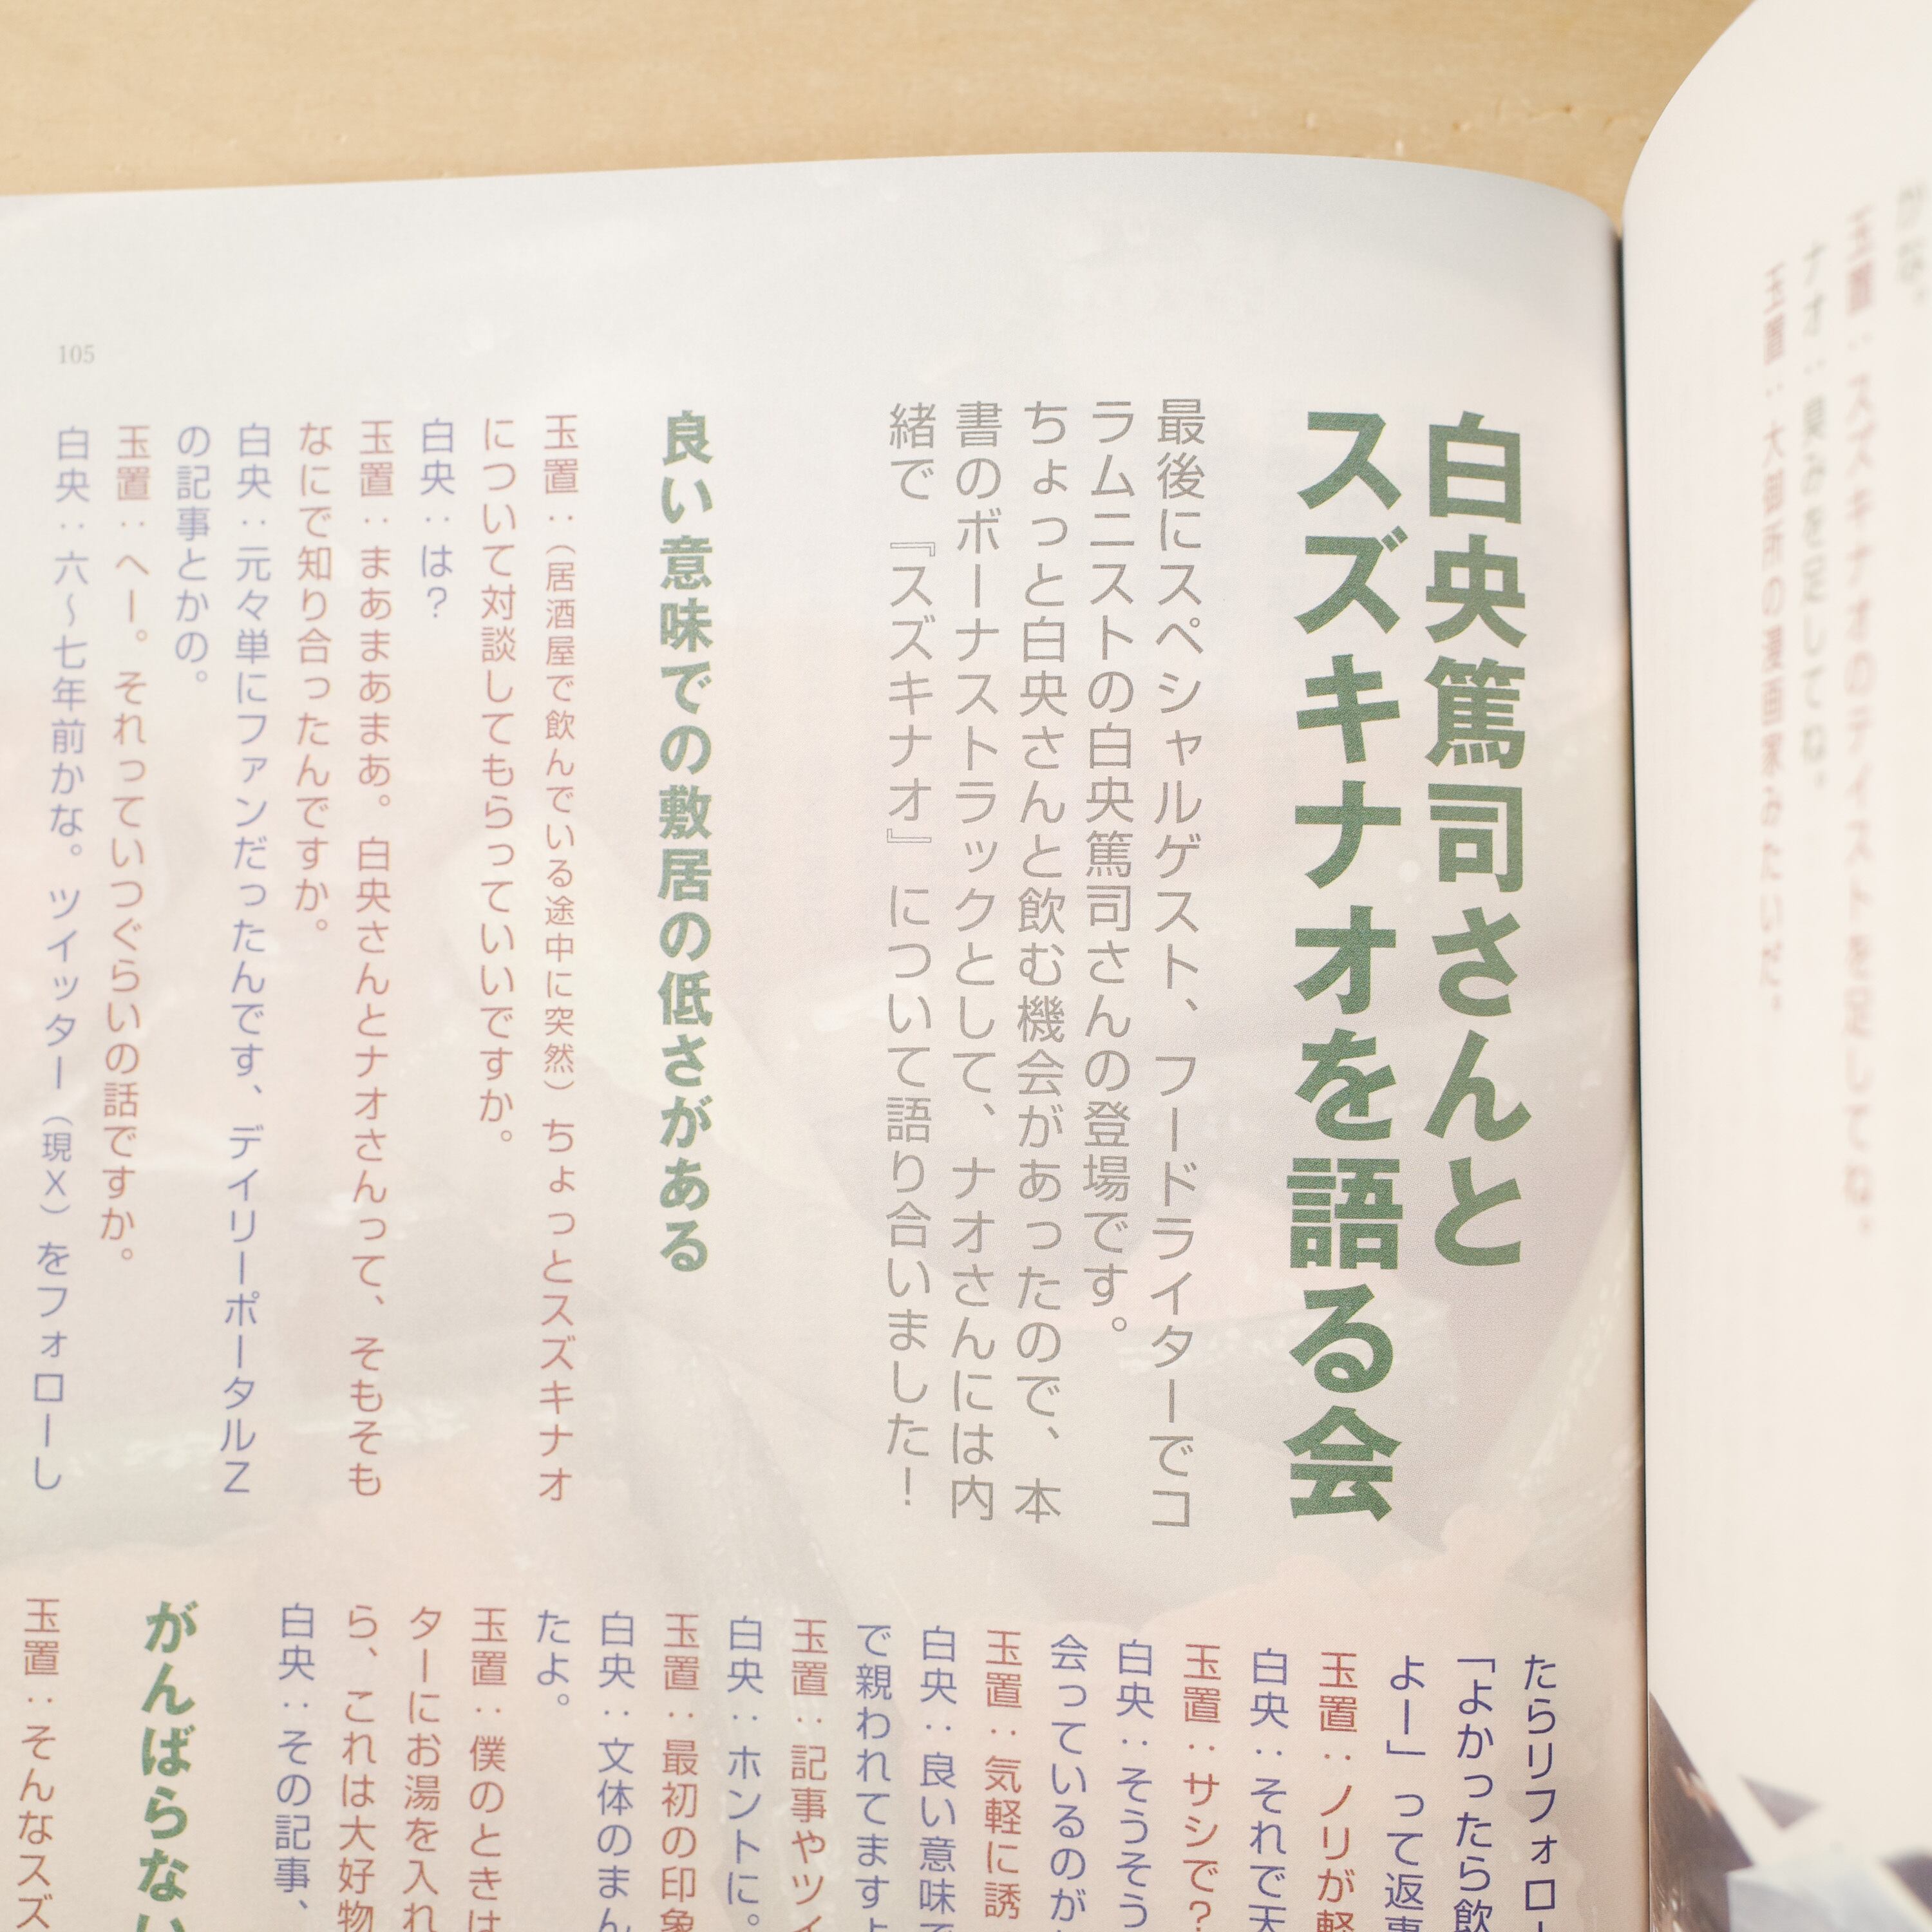 玉置：スズキナオのテイストを足してね。
ナオ：臭みを足してね。
玉置：大御所の漫画家みたいだ。
白央篤司さんと
スズキナオを語る会
最後にスペシャルゲスト、フードライターでコ
ラムニストの白央篤司さんの登場です。
ちょっと白央さんと飲む機会があったので、本
書のボーナストラックとして、ナオさんには内
緒で『スズキナオ』について語り合いました！
良い意味での敷居の低さがある
玉置：（居酒屋で飲んでいる途中に突然）ちょっとスズキナオ
について対談してもらっていいですか。
白央：は？
玉置：まあまあまあ。白央さんとナオさんって、そもそも
なにで知り合ったんですか。
白央：元々単にファンだったんです、デイリーポータルZ
の記事とかの。
玉置：へー。それっていつぐらいの話ですか。
白央：六〜七年前かな。ツイッター（現X）をフォローし
105
たらリフォロー
「よかったら飲
よー」って返事
玉置：ノリが軽
白央：それで天
玉置：サシで？
白央：そうそう
会っているのが
玉置：気軽に誘
白央：良い意味で
で親われてますよ
玉置：記事やツイ
白央：ホントに。
玉置：最初の印象
白央：文体のまん
たよ。
玉置：僕のときは
ターにお湯を入れ
ら、これは大好物
白央：その記事、
がんばらない
玉置：そんなスズ